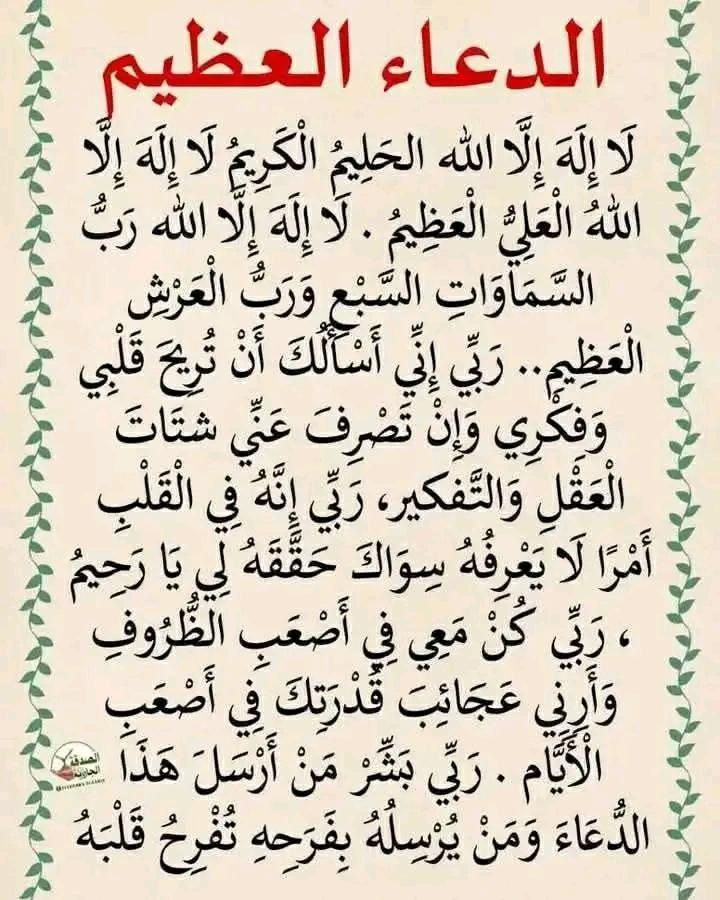 الدعاء العظيم
لَا إِلَهَ إِلَّا الله الحَلِيمُ الْكَرِيمُ لَا إِلَهَ إِلَّا
اللهُ الْعَلِيُّ الْعَظِيمُ . لَا إِلَهَ إِلَّا الله رَبُّ
السَّمَاوَاتِ السَّبْعِ وَرَبُّ الْعَرْشِ
الْعَظِيمِ.. رَبِّي إِنِّي أَسْأَلُكَ أَنْ تُرِيحَ قَلْبِي
وَفِكْرِي وَإِنْ تَصْرِفَ عَنِّي شتَاتَ
الْعَقْلِ وَالتَّفكير، رَبِّي إِنَّهُ فِي الْقَلْبِ
أَمْرًا لَا يَعْرِفُهُ سِوَاكَ حَقَّقَهُ لِي يَا رَحِيمُ
، رَبِّي كُنْ مَعِي فِي أَصْعَبِ الظُّرُوفِ
وَأَرِنِي عَجَائِبَ قُدْرَتِكَ فِي أَصْعَبِ
الْأَيَّامِ . رَبِّي بَشِّرْ مَنْ أَرْسَلَ هَذَا
الدُّعَاءَ وَمَنْ يُرْسِلُهُ بِفَرَحِهِ تُفْرِحُ قَلْبَهُ
الصدقة
الجارية